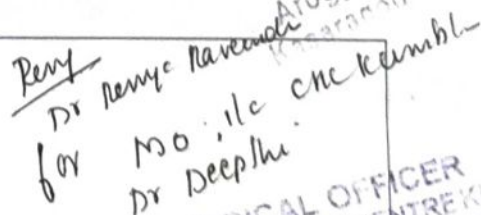 Kasaragod
Remy
Dr Remya Raveendr
for MO i/c CHC Kumbl
Dr Deepthi
ICAL OFFICER
ENTRE K